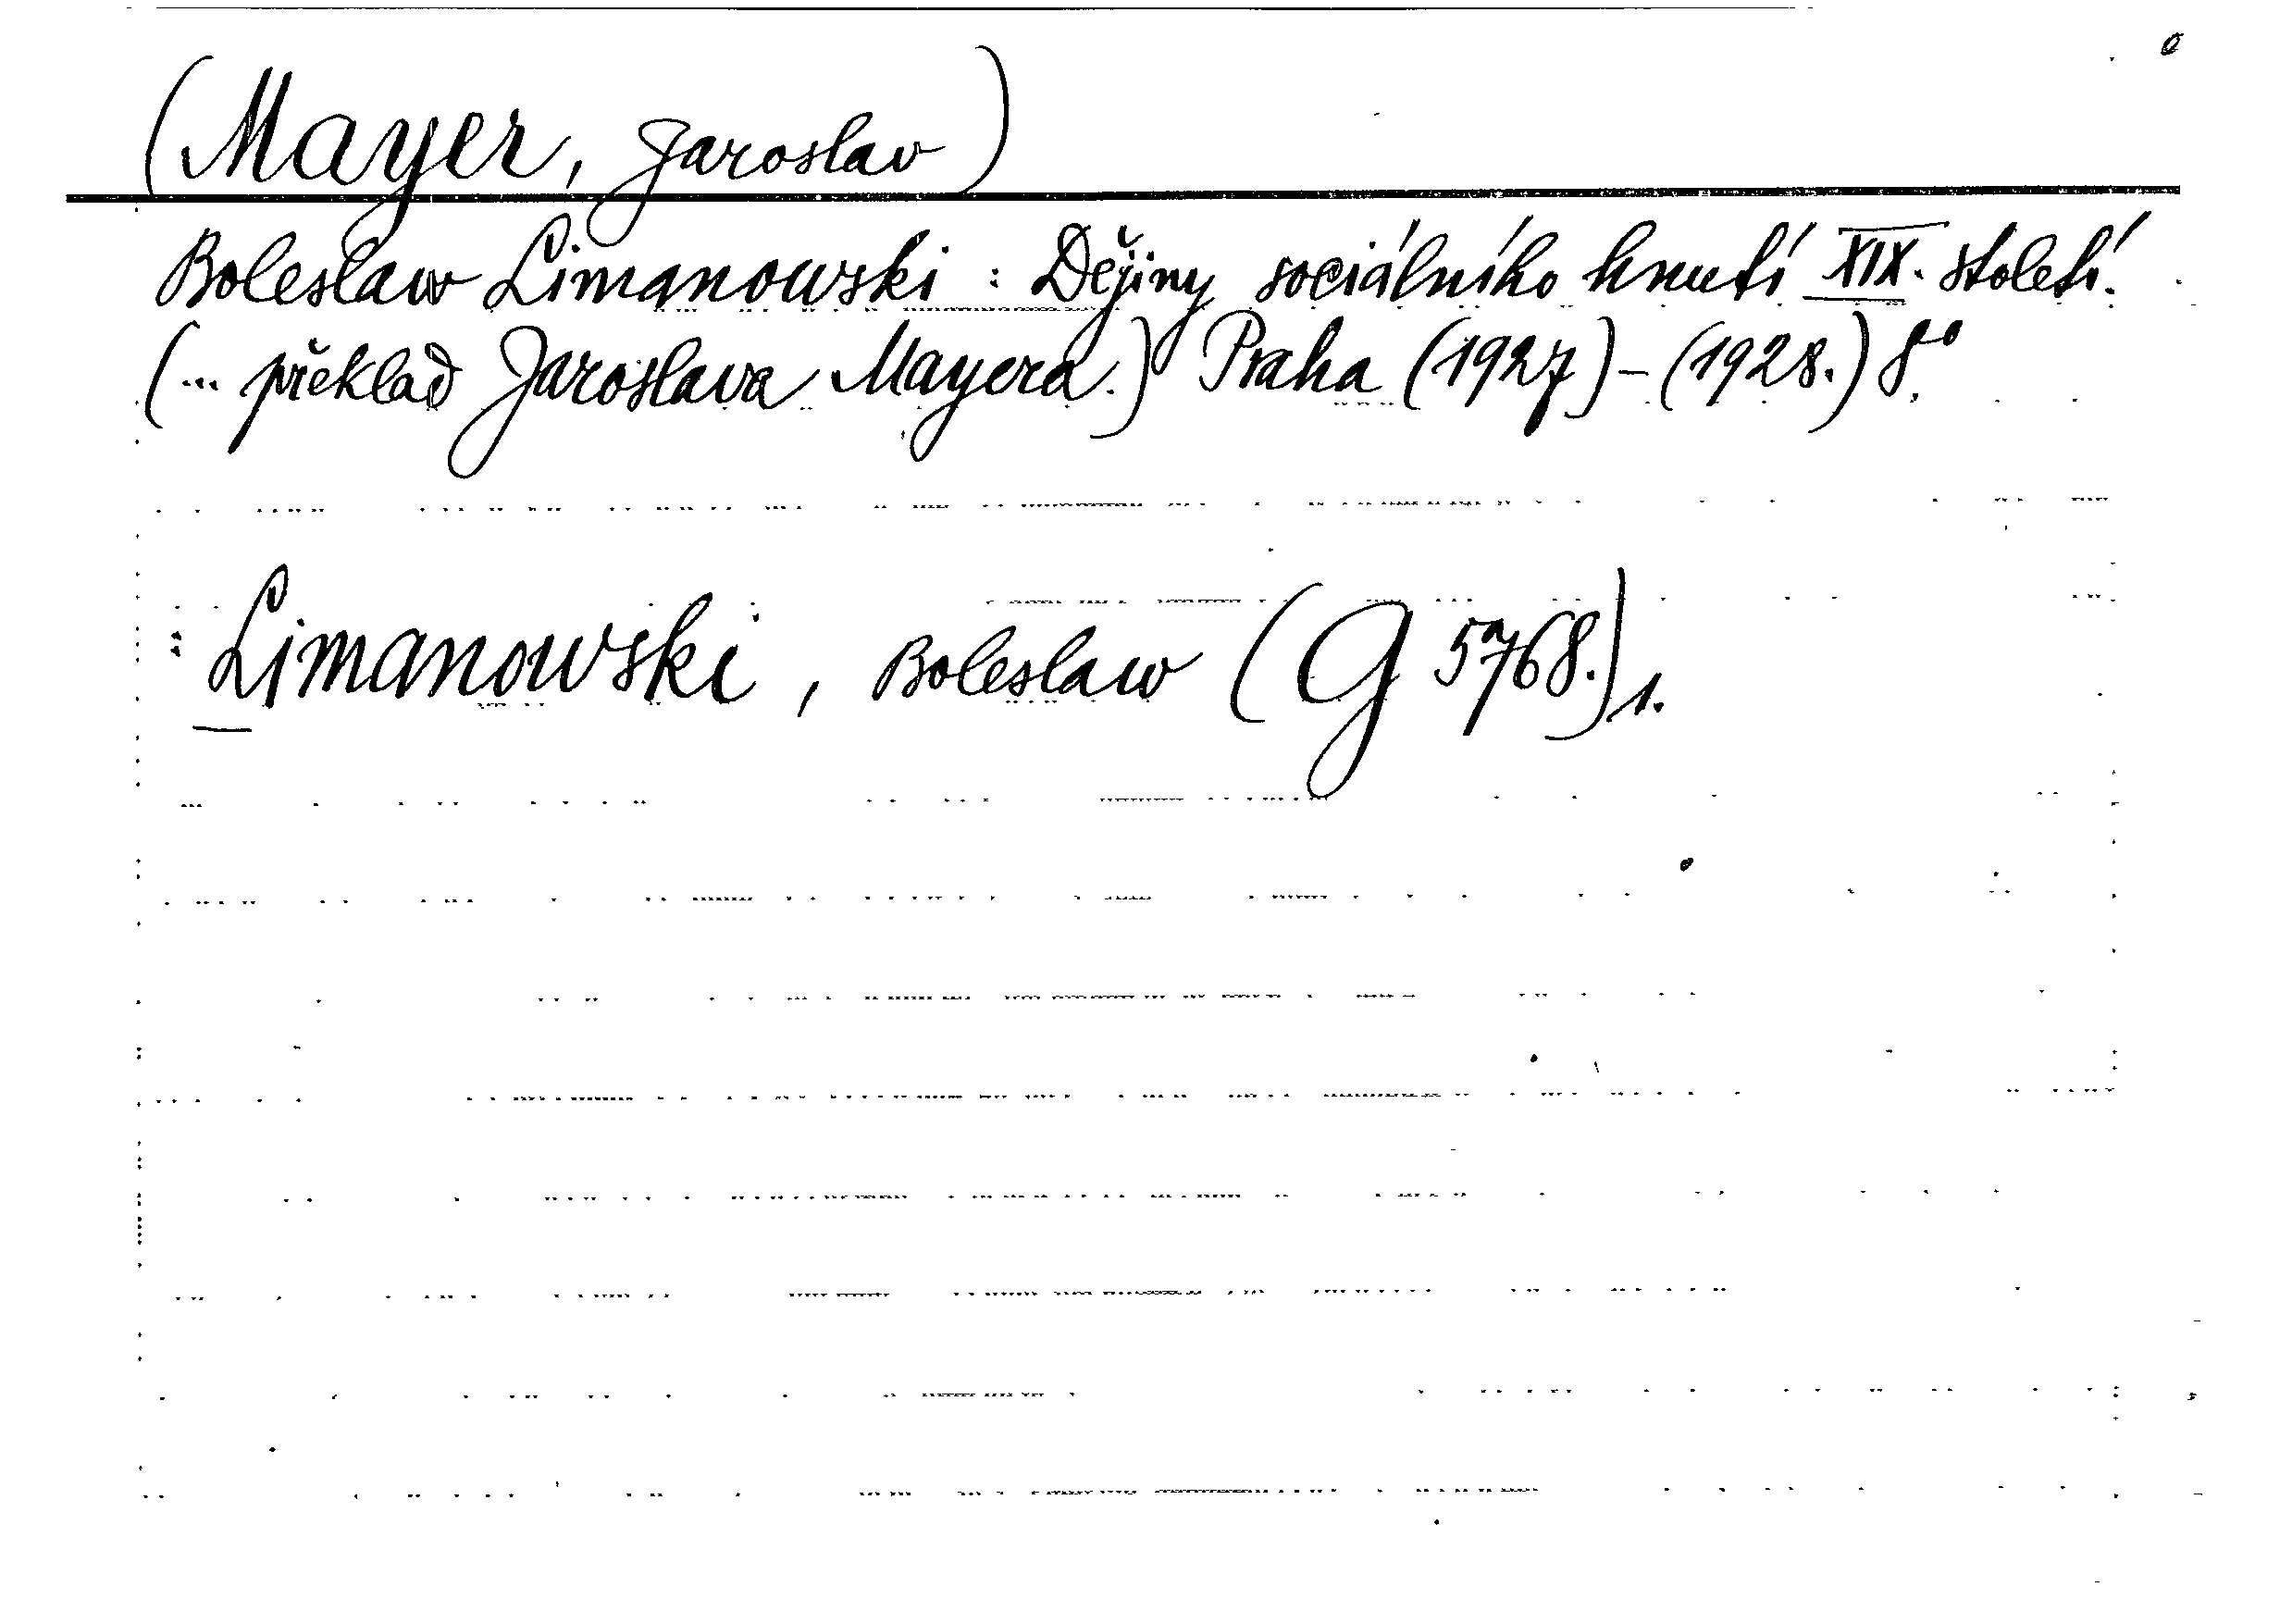 (Mayer, Jaroslav)
Boleslaw Limanowski : Dějiny sociálního hnutí XIX. století.
(... překlad Jaroslava Mayera.) Praha (1927)-(1928.) 8°.
: Limanowski, Boleslaw (G 5768.) 1.